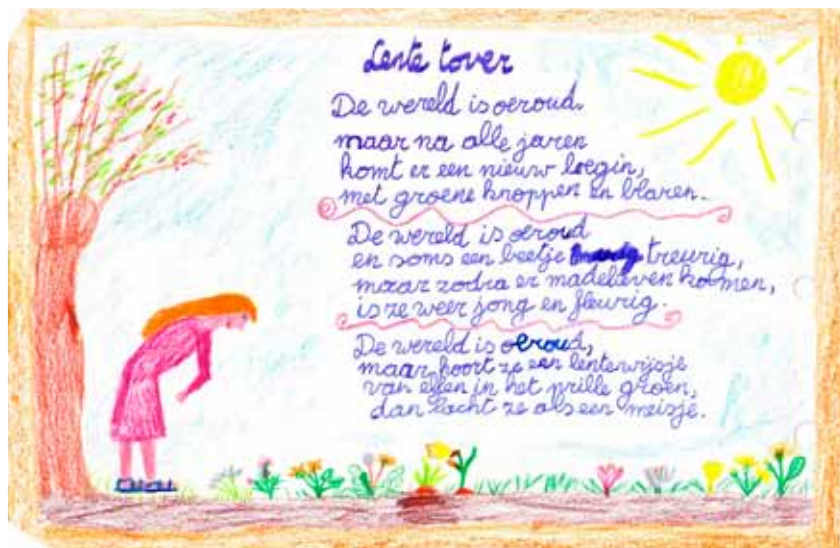 Lente tover
De wereld is oeroud.
maar na alle jaren
komt er een nieuw begin,
met groene knoppen en blaren.
De wereld is oeroud
en soms een beetje treurig,
maar zodra er madelieven komen,
is ze weer jong en fleurig.
De wereld is oeroud,
maar hoort ze een lentewijsje
van elfen in het prille groen,
dan lacht ze als een meisje.